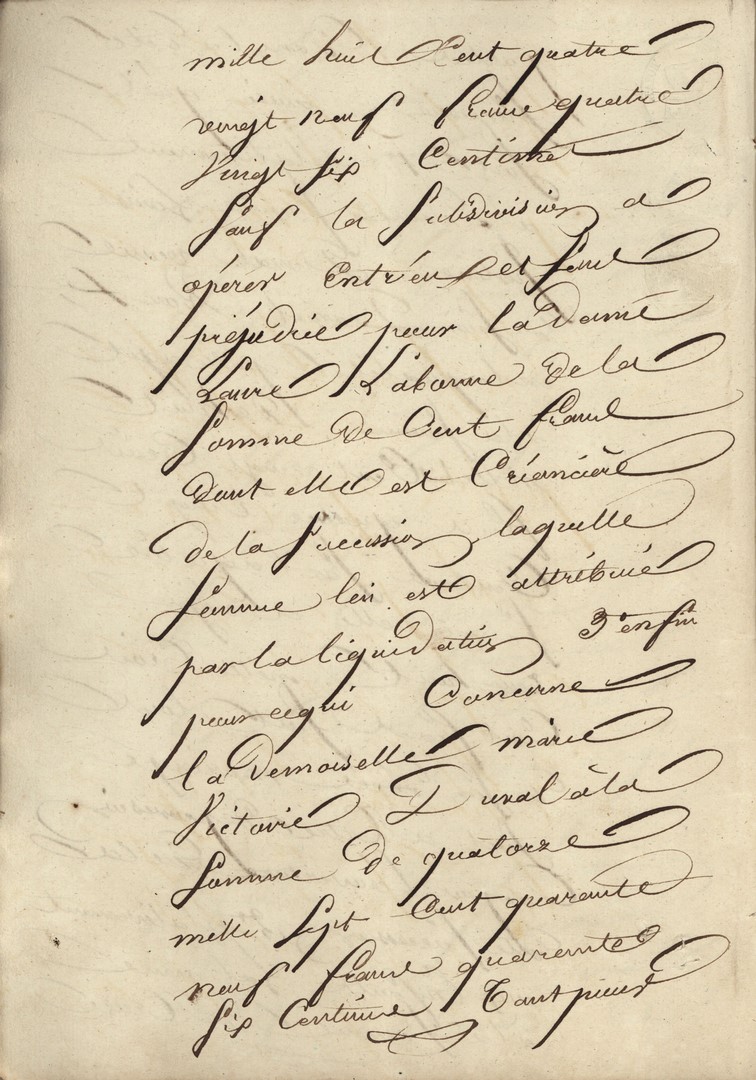 mille huit Cent quatre
vingt neuf franc quatre
Vingt six Centime
Sauf la Subdivision a
opérer Entr'eux et Sans
préjudice pour la dame
Laure Labonne de la
Somme de Cent franc
dont elle est Créancière
de la Succession laquelle
Somme lui est attribuée
par la liquidation 3° enfin
pour ce qui Concerne
la Demoiselle marie
Victorie Duval à la
Somme de quatorze
mille Sept Cent quarante
neuf franc quarante
Six Centime Tant pour